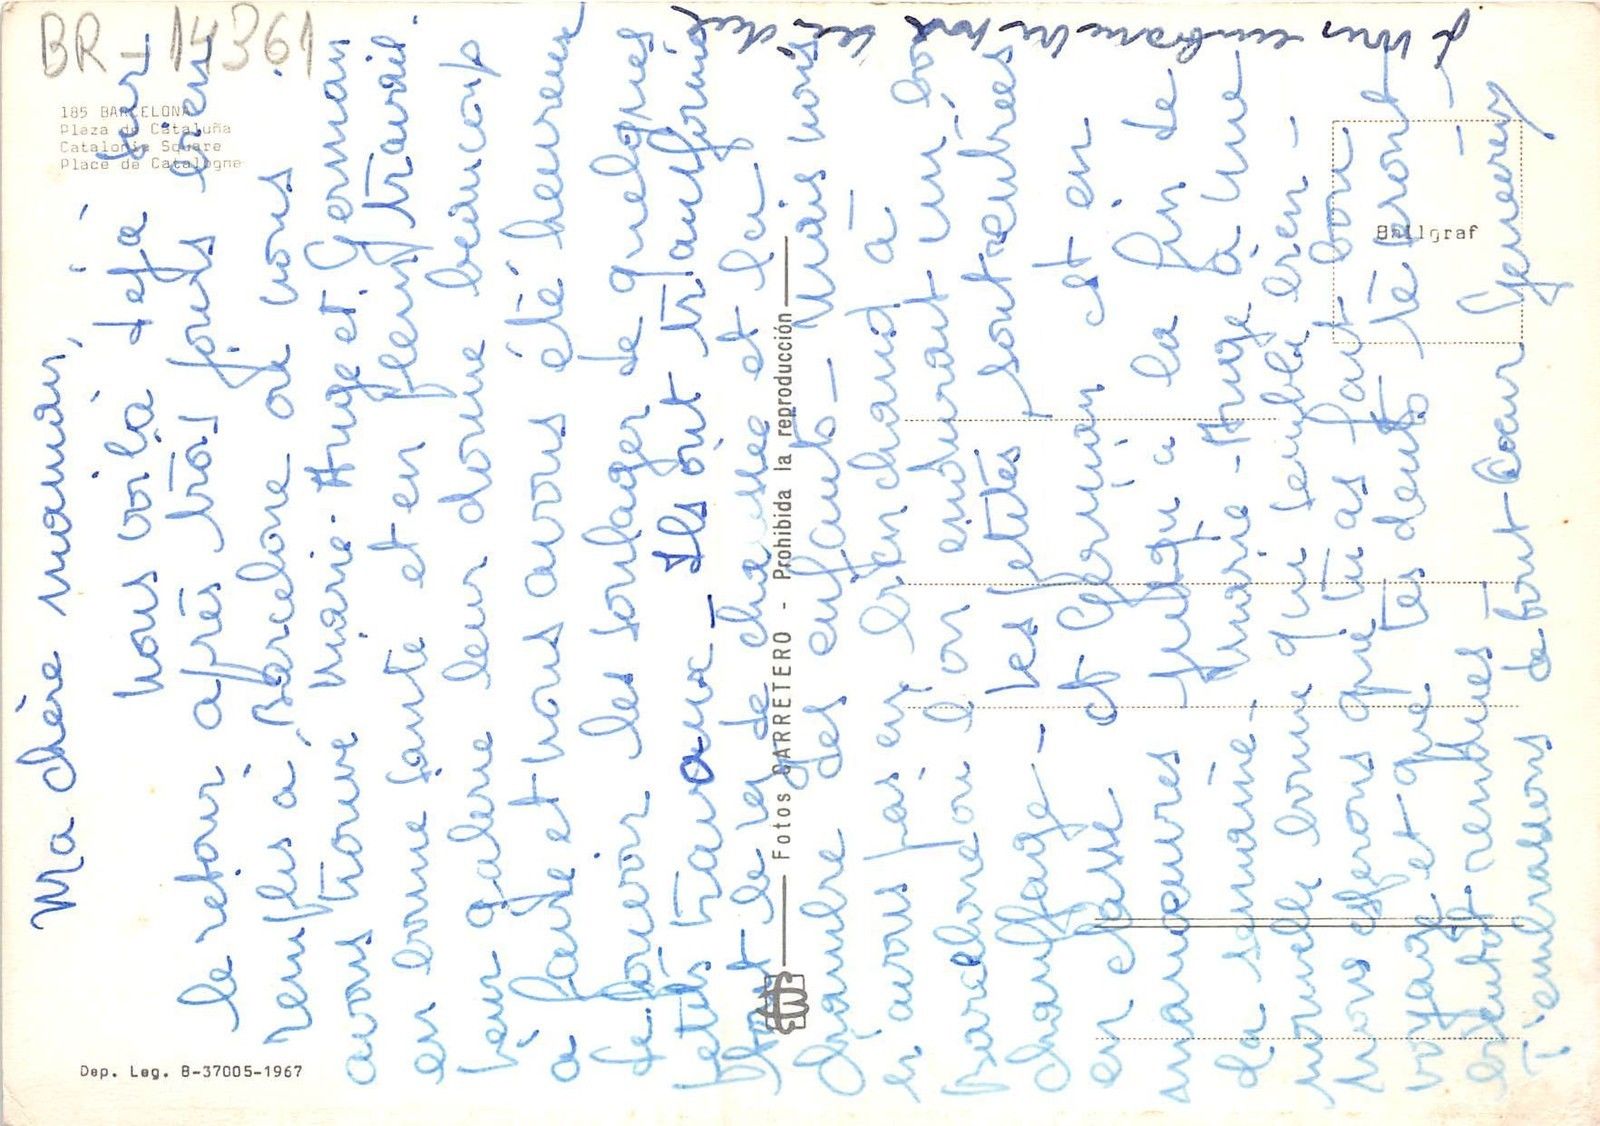 BR-14361
185 BARCELONA
Plaza de Cataluña
Catalonia Square
Place de Catalogne
Ma chère maman,
nous voilà déjà sur
le retour après trois jours bien
remplis à Barcelone où nous
avons trouvé Marie-Ange et German
en bonne santé et en plein travail.
Leur galerie leur donne beaucoup
à faire et nous avons été heureux
de pouvoir les soulager de quelques
petits travaux - Ils ont transformé
le rez de chaussée et la
chambre des enfants - Mais nous
n'avons pas eu bien chaud à
Barcelone où l'on endurait un bon
chauffage - Les petites sont rentrées
en classe et German est en
manoeuvres jusqu'à la fin de
la semaine. Marie-Ange a une
nouvelle bonne qui semble bien -
Nous espérons que tu as fait bon
voyage et que tes dents te seront
bientôt rendues -
T'embrassons de tout coeur
Dep. Leg. B-37005-1967
Fotos GARRETERO - Prohibida la reproducción
Ballgraf